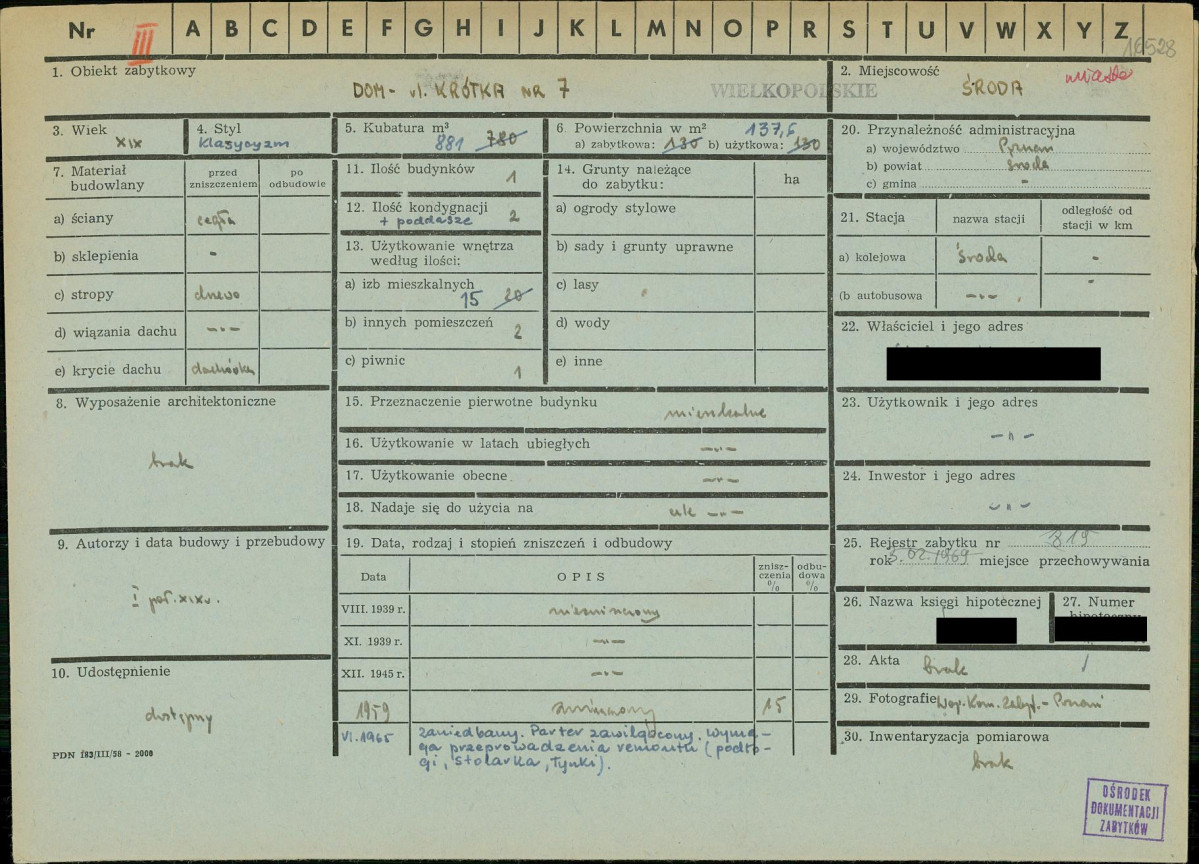 Nr III A B C D E F G H I J K L M N O P R S T U V W X Y Z
16528
1. Obiekt zabytkowy
DOM - ul. KRÓTKA NR 7
WIELKOPOLSKIE
2. Miejscowość
miasto
ŚRODA
3. Wiek
XIX
4. Styl
Klasycyzm
5. Kubatura m³
881 780
6. Powierzchnia w m² 137,6
a) zabytkowa: 130 b) użytkowa: 130
7. Materiał budowlany
przed zniszczeniem
po odbudowie
a) ściany cegła
b) sklepienia -
c) stropy drewo
d) wiązania dachu -"-
e) krycie dachu dachówka
8. Wyposażenie architektoniczne
brak
9. Autorzy i data budowy i przebudowy
I poł. XIX w.
10. Udostępnienie
dostępny
PDN 183/III/58 - 2000
11. Ilość budynków 1
12. Ilość kondygnacji 2
+ poddasze
13. Użytkowanie wnętrza
według ilości:
a) izb mieszkalnych
15 20
b) innych pomieszczeń 2
c) piwnic 1
14. Grunty należące
do zabytku:
ha
a) ogrody stylowe
b) sady i grunty uprawne
c) lasy
d) wody
e) inne
15. Przeznaczenie pierwotne budynku mieszkalne
16. Użytkowanie w latach ubiegłych -"-
17. Użytkowanie obecne -"-
18. Nadaje się do użycia na cele -"-
19. Data, rodzaj i stopień zniszczeń i odbudowy
Data
OPIS
znisz-
czenia
%
odbu-
dowa
%
VIII. 1939 r. niezniszczony
XI. 1939 r. -"-
XII. 1945 r. -"-
1959 zniszczony 15
VI.1965 zaniedbany. Parter zawilgocony, wyma-
ga przeprowadzenia remontu (podło-
gi, stolarka, tynki).
20. Przynależność administracyjna
a) województwo Poznań
b) powiat Środa
c) gmina -
21. Stacja
nazwa stacji
odległość od
stacji w km
a) kolejowa Środa -
(b autobusowa -"- -
22. Właściciel i jego adres
23. Użytkownik i jego adres
-"-
24. Inwestor i jego adres
-"-
25. Rejestr zabytku nr 819
rok 5.02.1969 miejsce przechowywania
26. Nazwa księgi hipotecznej
27. Numer
hipoteczny
28. Akta brak /
29. Fotografie Woj. Kom. Zabyt. - Poznań
30. Inwentaryzacja pomiarowa
brak
OŚRODEK
DOKUMENTACJI
ZABYTKÓW